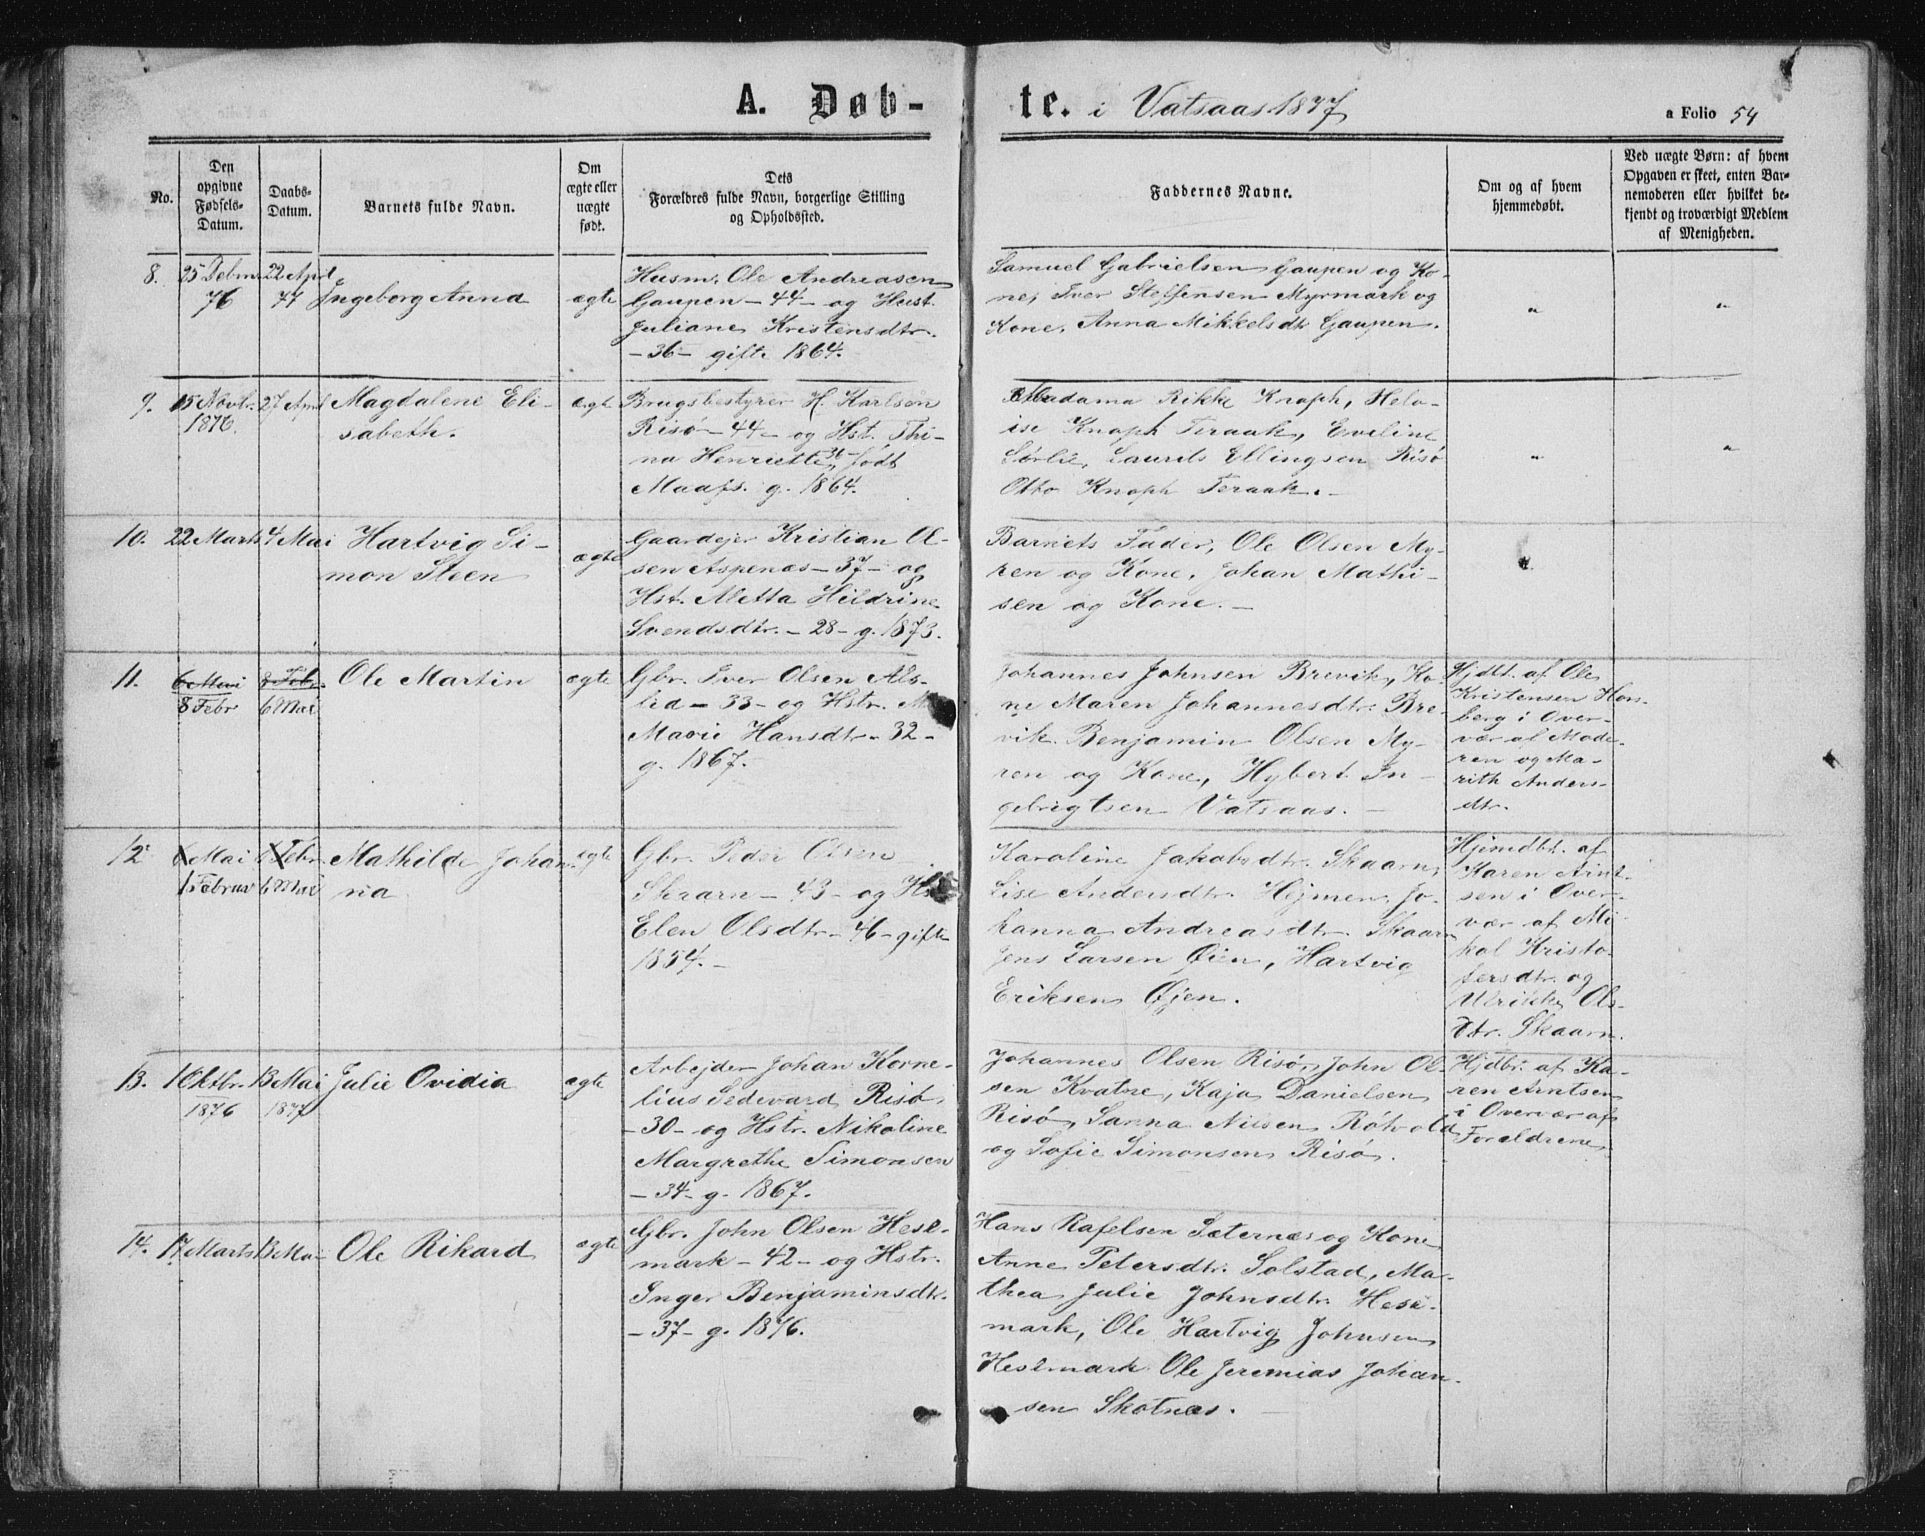 A. Døb-
te. i Vatsaas 1877
a Folio 54
No.
Den
opgivne
Fødsels-
Datum.
Daabs-
Datum.
Barnets fulde Navn.
Om
ægte eller
uægte
født.
Dets
Forældres fulde Navn, borgerlige Stilling
og Opholdssted.
Faddernes Navne.
Om og af hvem
hjemmedøbt.
Ved uægte Børn: af hvem
Opgaven er skeet, enten Bar-
nemoderen eller hvilket be-
kjendt og troværdigt Medlem
af Menigheden.
8.
25 Debm
76
22 April
77
Ingeborg Anna
ægte
Husm. Ole Andreasen
Gaupen - 44 - og Hust.
Juliane Kristensdtr.
- 36 - gifte 1864.
Samuel Gabrielsen Gaupen og Ko-
ne, Iver Steffensen Myrmark og
Kone, Anna Mikkelsdtr Gaupen.
"
"
9.
15 Novbr.
1876.
27 April
Magdalene Eli-
sabeth.
ægte
Brugsbestyrer H. Karlsen
Risø - 44 - og Hst. Thi-
na Henriette, født
Maass. g. 1864.
Madama Rikke Knoph, Helo-
ise Knoph Teraak, Eveline
Sørlie, Laurits Ellingsen Risø
Otto Knoph Teraak. -
"
"
10.
22 Marts
4 Mai
Hartvig Si-
mon Steen
ægte
Gaardejer Kristian Ol-
sen Aspenæs - 37 - og
Hst. Aletta Hildrine
Svendsdtr. - 28 - g. 1873.
Barnets Fader, Ole Olsen My-
ren og Kone, Johan Mathi-
sen og Kone. -
"
11.
6 Mai
8 Febr
8 Febr.
6 Mai
Ole Martin
ægte
Gbr. Iver Olsen Als-
lid - 33 - og Hstr.
Marie Hansdtr - 32 -
g. 1867.
Johannes Johnsen Brevik, Ko-
ne Maren Johannesdtr. Bre-
vik. Benjamin Olsen My-
ren og Kone, Hybert In-
gebrigtsen Vatsaas. -
Hjdbt. af Ole
Kristensen Hon-
berg i Over-
vær af Mode-
ren og Ma-
rith Anders-
dtr.
12.
6 Mai
1 Februar
1 Febr
6 Mai
Mathilde Johan
na
ægte
Gbr. Peder Olsen
Skaarn - 43 - og Hst
Elen Olsdtr - 46 - gifte
1854. -
Karoline Jakobsdtr. Skaarn,
Lise Andersdtr. Hejmen, Jo-
hanna Andreasdtr. Skaarn
Jens Larsen Øien, Hartvig
Eriksen Øjen.
Hjmdbt. af
Karen Arnt-
sen i Over-
vær af Mi-
kal Kristo-
fersdtr. og
Ulrikke Ols-
dtr. Skaarn.
13.
1 Oktbr.
1876
13 Mai
1877
Julie Ovidia
ægte
Arbejder Johan Korne-
lius Sedevard Risø,
- 30 - og Hstr. Nikoline
Margrethe Simonsen
- 34 - g. 1867.
Johannes Olsen Risø, John Ol-
sen Kvatne, Kaja Danielsen
Risø, Sanna Nilsen Røtvold
og Sofie Simonsen Risø.
Hjdbt. af Ka-
ren Arntsen
i Overvær af
Forældrene
14.
17 Marts
13 Mai
Ole Rikard
ægte
Gbr. John Olsen Hesl-
mark - 42 - og Hstr.
Inger Benjaminsdtr.
- 37 - g. 1876.
Hans Rafelsen Sæternæs og Kone
Anne Petersdtr. Solstad, Ma-
thea Julie Johnsdtr. Hesl-
mark, Ole Hartvig Johnsen
Heslmark Ole Jeremias Johan-
sen Skotnæs.